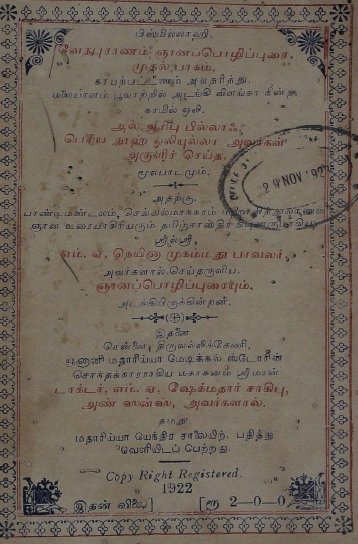 பிஸ்மில்லாஹி.
வேதபுராணம் ஞானப்பொழிப்புரை.
முதல் பாகம்.
காயற்பட்டணம் அவதரித்து,
மலையாளம் பூவாற்றில் அடங்கி விளங்கா நின்ற
காமில் ஒலி
அல் ஆரிபு பில்லாஹ்,
பெரிய நூஹ் ஒலியுல்லா அவர்கள்
அருளிச் செய்த
மூலபாடமும்.
அதற்கு
பாண்டிமண்டலம்,
ஞான உரையாசிரியரும் தமிழ்சாஸ்திர
ஸ்ரீலஸ்ரீ
எம். ஏ. நெயினா முகம்மது பாவலர்,
அவர்களால் செய்தருளிய
ஞானப்பொழிப்புரையும்,
அடங்கியிருக்கின்றன.
இதனை
சென்னை, திருவல்லிக்கேணி,
யூனானி மதாரிய்யா மெடிக்கல் ஸ்டோரின்
சொந்தக்காரராகிய மகாகனம் ஸ்ரீமான்
டாக்டர், எம். ஏ. ஷேக்மதார் சாகிபு,
அண் ஸன்ஸ், அவர்களால்.
தமது
மதாரிய்யா யெந்திர சாலையிற் பதித்து
வெளியிடப் பெற்றது.
Copy Right Registered.
1922
இதன் விலை] [ரூ 2-0-0
24 NOV. 1926